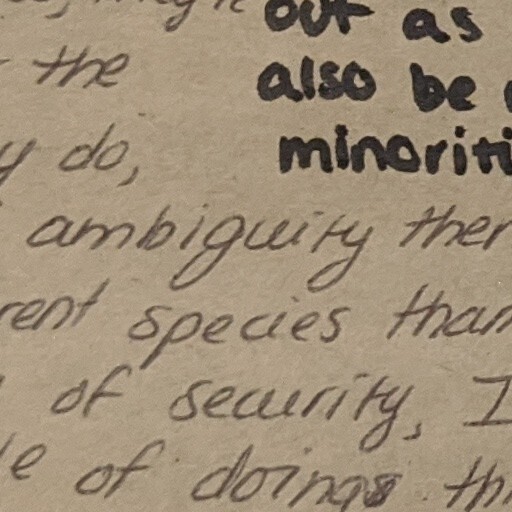 out as
the
also be
y do,
minoriti
ambiguity ther
rent species than
of security, I
e of doings th